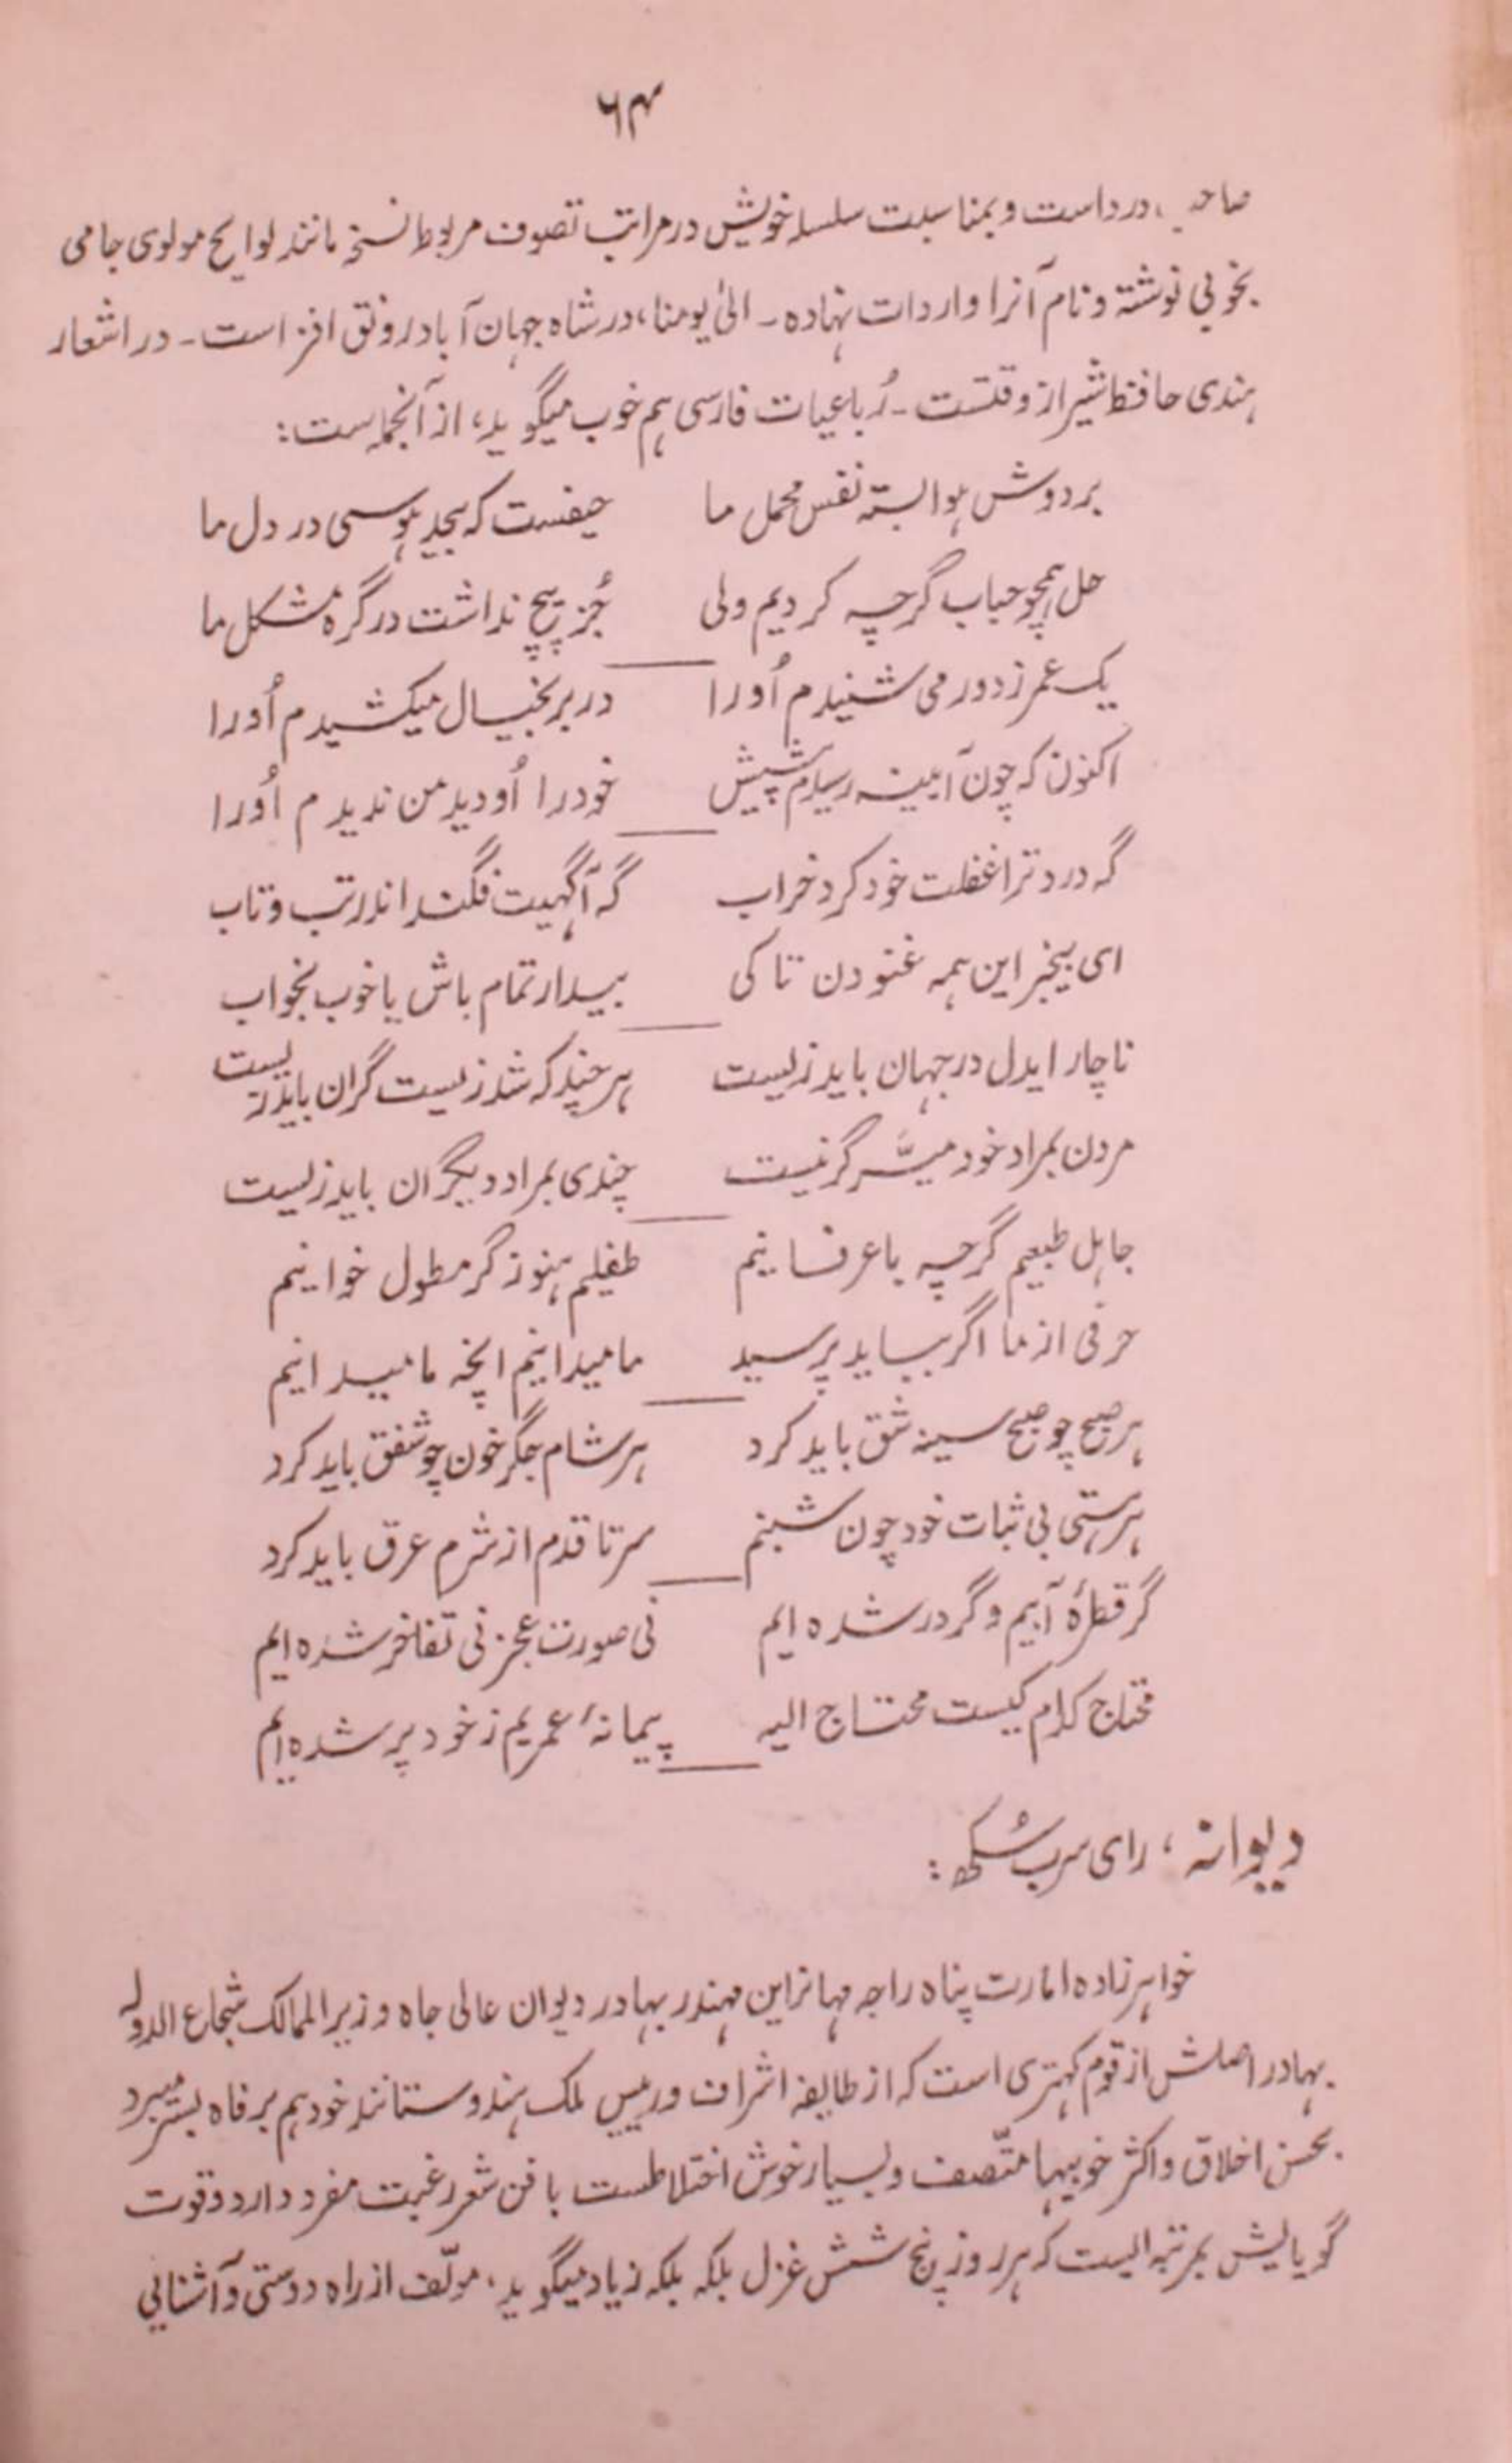 ۶۴
صاحب درد است و بمناسبت سلسلہ خویش در مراتب تصوف مربوط نسخہ مانند لوایح مولوی جامی
بخوبی نوشتہ و نام آنرا واردات نہادہ ـ الیٰ یومنا، در شاہ جہان آباد رونق افز است ـ در اشعار
ہندی حافظ شیراز وقتست ـ رُباعیات فارسی ہم خوب میگوید، از آنجملہ است:
بر دوش ہوا بستہ نفس محمل ما حیفست کہ بیجد ہوسی در دل ما
حل ہمچو حباب گرچہ کردیم ولی جُز ہیچ نداشت در گرہ مشکل ما
یک عمر ز دور می شنیدم اُورا در بر بخیال میکشیدم اُورا
اکنون کہ چون آیینہ رسیدم پیش خود را اُو دید من ندیدم اُورا
گہ درد ترا غفلت خود کرد خراب گہ آگہیت فگند اندر تب و تاب
ای بیخبر این ہمہ غنودن تا کی بیدار تمام باش یا خوب بخواب
ناچار ایدل در جہان باید زیست ہر چند کہ شد زیست گران باید زیست
مردن بمراد خود میسَّر گر نیست چندی بمراد دیگران باید زیست
جاہل طبعیم گرچہ با عرفانیم طفلیم ہنوز گر مطول خوانیم
حرفی از ما اگر بباید پرسید ما میدانیم انچہ ما میدانیم
ہر صبح چو صبح سینہ شق باید کرد ہر شام جگر خون چو شفق باید کرد
بر ہستی بی ثبات خود چون شبنم سر تا قدم از شرم عرق باید کرد
گر قطرۂ آبیم و گر در شدہ ایم نی صورت عجز نی تفاخر شدہ ایم
محتاج کدام کیست محتاج الیہ پیمانۂ عمریم ز خود پر شدہ ایم
دیوانہ، رای سرب سُکھ:
خواہرزادہ امارت پناہ راجہ مہا نراین مہندر بہادر دیوان عالی جاہ وزیر الممالک شجاع الدولہ
بہادر اصلش از قوم کہتری است کہ از طایفہ اشراف و رییس ملک ہندوستانند خود ہم برفاہ بسر میبرد
بحسن اخلاق و اکثر خوبیہا متّصف و بسیار خوش اختلاطست با فن شعر رغبت مفرد دارد و قوت
گویایش بمرتبہ ایست کہ ہر روز پنج شش غزل بلکہ بلکہ زیاد میگوید، مولّف از راہ دوستی و آشنایی